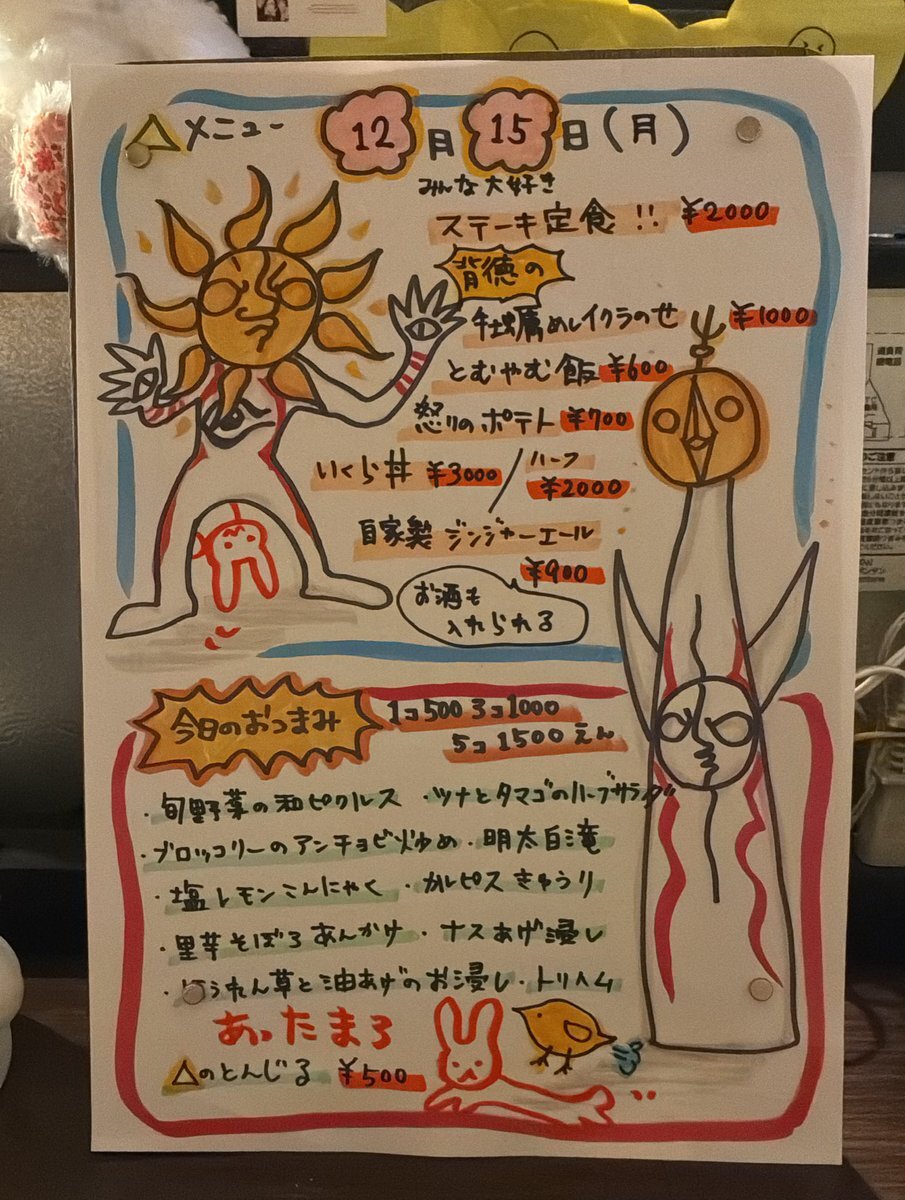 △メニュー 12月15日(月)
みんな大好き
ステーキ定食!! ¥2000
背徳の
牡蠣めしイクラのせ ¥1000
とむやむ飯 ¥600
怒りのポテト ¥700
いくら丼 ¥3000 / ハーフ ¥2000
自家製 ジンジャーエール
¥900
お酒も
入れられる
今日のおつまみ 1コ500 3コ1000
5コ1500えん
・旬野菜の和ピクルス ・ツナとタマゴのハーブサラダ
・ブロッコリーのアンチョビ炒ゆめ ・明太白滝
・塩レモンこんにゃく ・カルピスきゅうり
・里芋そぼろあんかけ ・ナスあげ浸し
・ほうれん草と油あげのお浸し ・トリハム
あったまる
△のとんじる ¥500